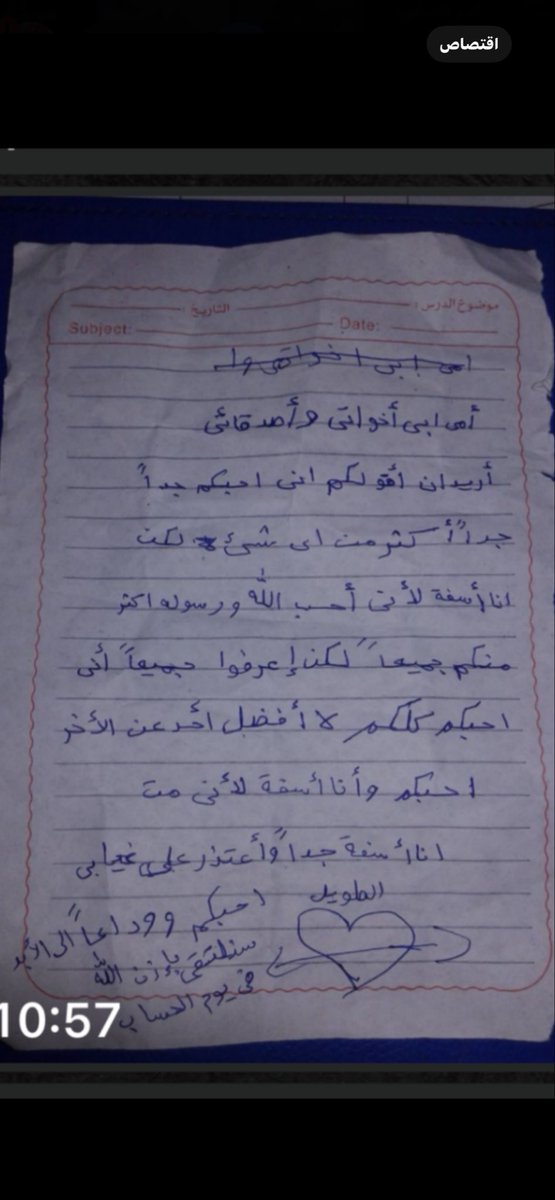 اقتصاص
موضوع الدرس : التاريخ :
Subject: Date:
امى ابى اخواتى وا
أمى ابى أخواتى وأصدقائى
أريد ان أقولكم انى احبكم جداً
جداً أكثر من اى شئ لكن
انا أسفة لأنى أحب الله ورسوله اكثر
منكم جميعاً لكن إعرفوا جميعاً أنى
احبكم كلكم لا أفضل أحد عن الأخر
احبكم وأنا أسفة لأنى مت
انا أسفة جداً وأعتذر على غيابى
الطويل
احبكم ووداعاً الى الأبد
سنلتقى بإذن الله
فى يوم الحساب
10:57